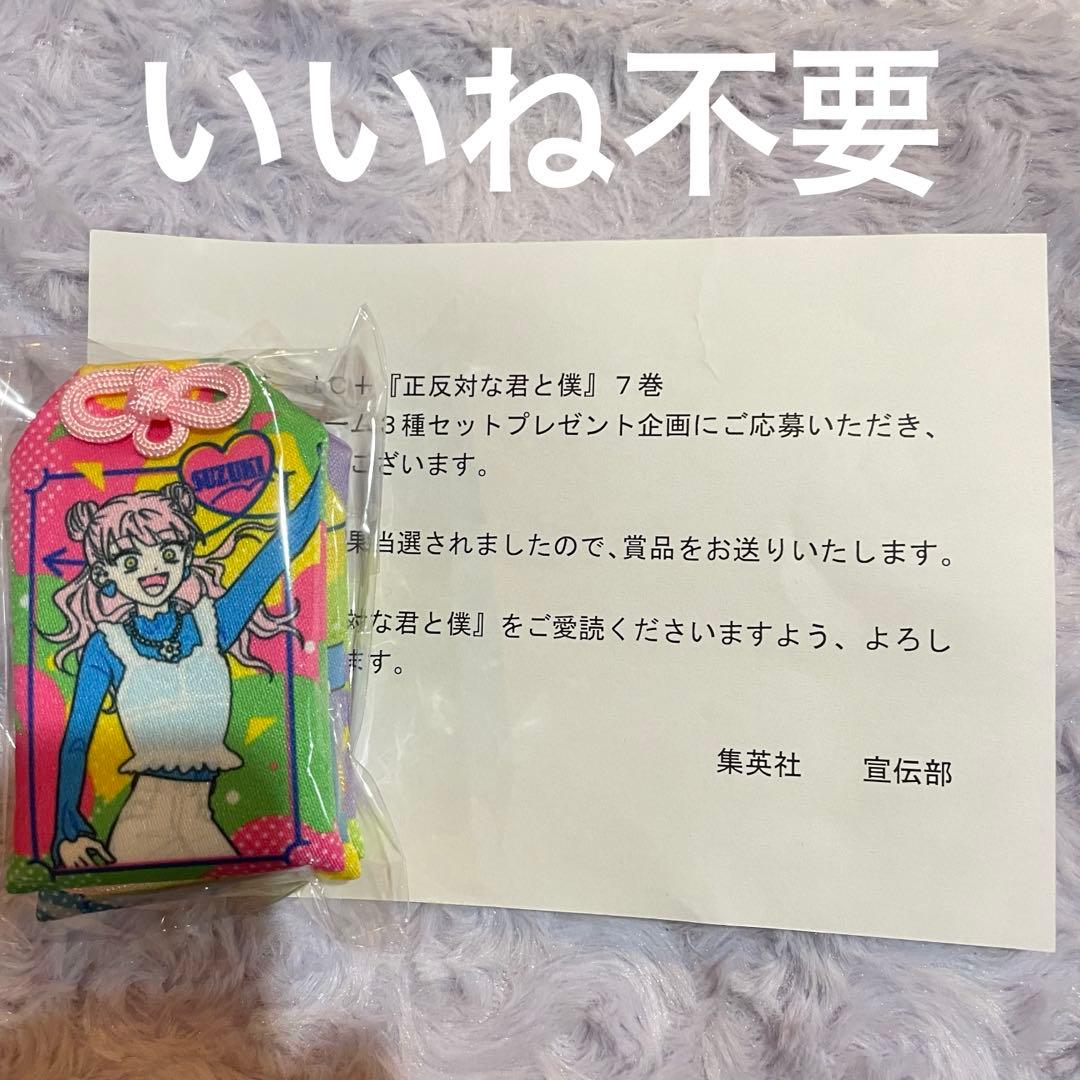 いいね不要
JC＋『正反対な君と僕』７巻
ーム３種セットプレゼント企画にご応募いただき、
ございます。
果当選されましたので、賞品をお送りいたします。
対な君と僕』をご愛読くださいますよう、よろし
ます。
集英社　宣伝部
SUZUKI